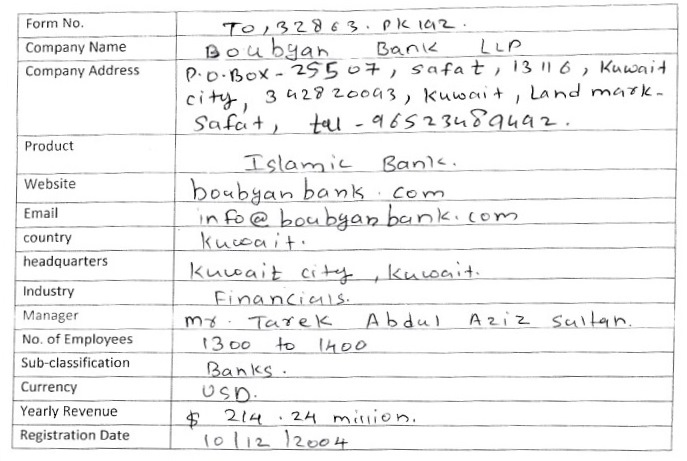 Form No. TO,32863.PK192.
Company Name Boubyan Bank LLP
Company Address P.O.Box-25507, safat, 13116, Kuwait
city, 342820093, Kuwait, Land mark-
Safat, tel-96523489492.
Product Islamic Bank.
Website boubyanbank.com
Email info@boubyanbank.com
country Kuwait.
headquarters Kuwait city, Kuwait.
Industry Financials.
Manager mr. Tarek Abdul Aziz Sultan.
No. of Employees 1300 to 1400
Sub-classification Banks.
Currency USD.
Yearly Revenue $ 214.24 million.
Registration Date 10/12/2004